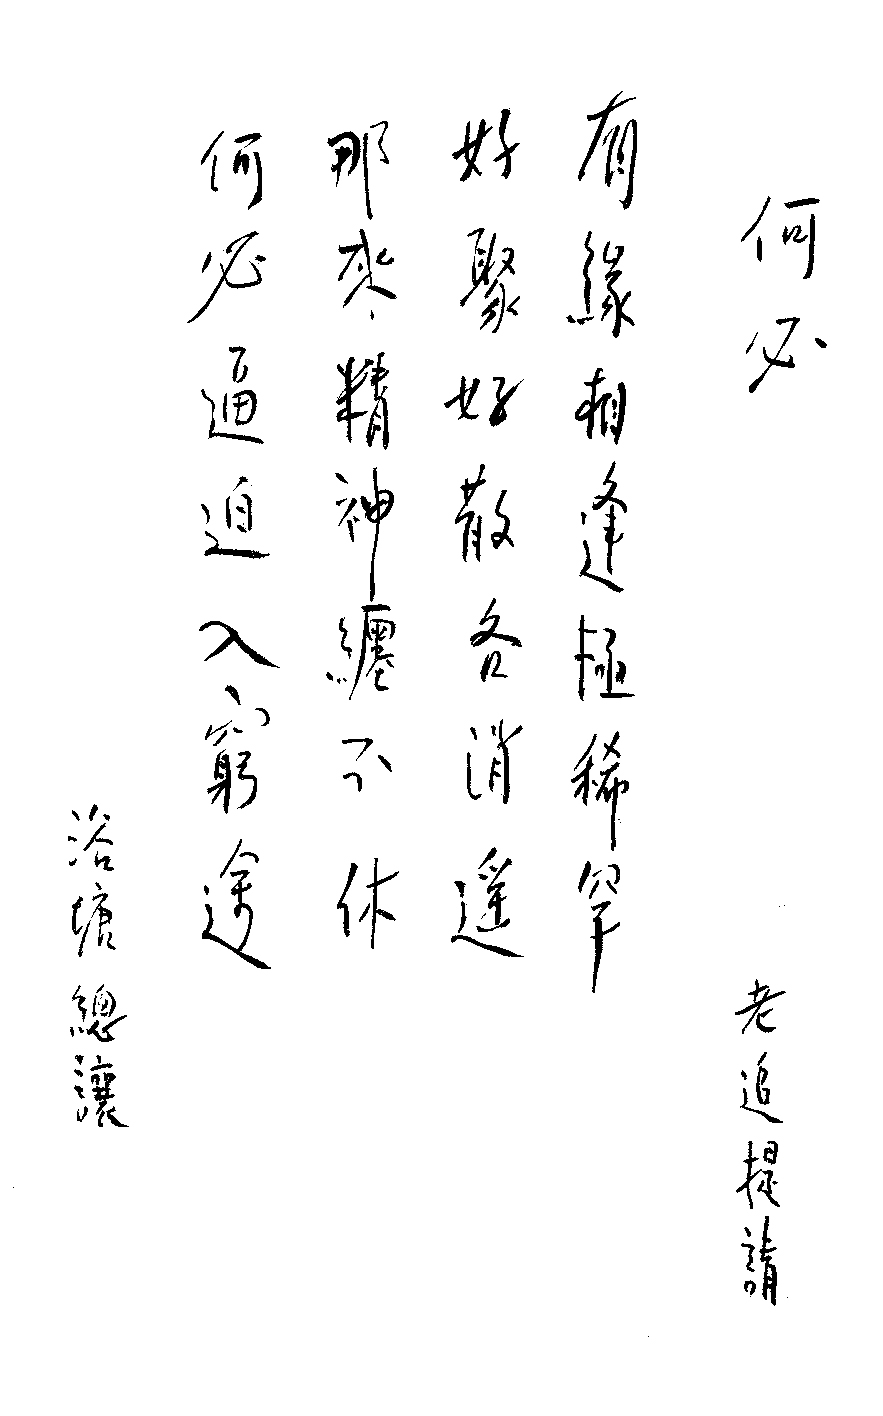 何必
老追提請
有緣相逢極稀罕
好聚好散各消遥
那來精神纏不休
何必逼迫入窮途
浴塘總讓